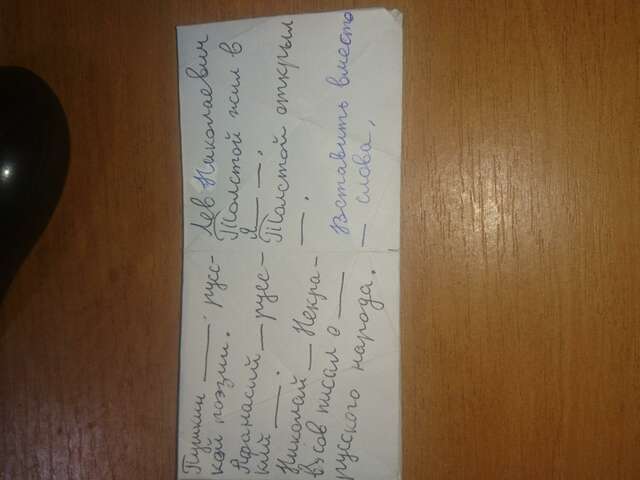 Пушкин ——. русс-
кой поэзии.
Афанасий — русс-
кий ——.
Николай — Некра-
сов писал о ——
русского народа.
Лев Николаевич
Толстой жил в
Я—— ——.
Толстой открыл
——.
Вставить вместо
— слова.